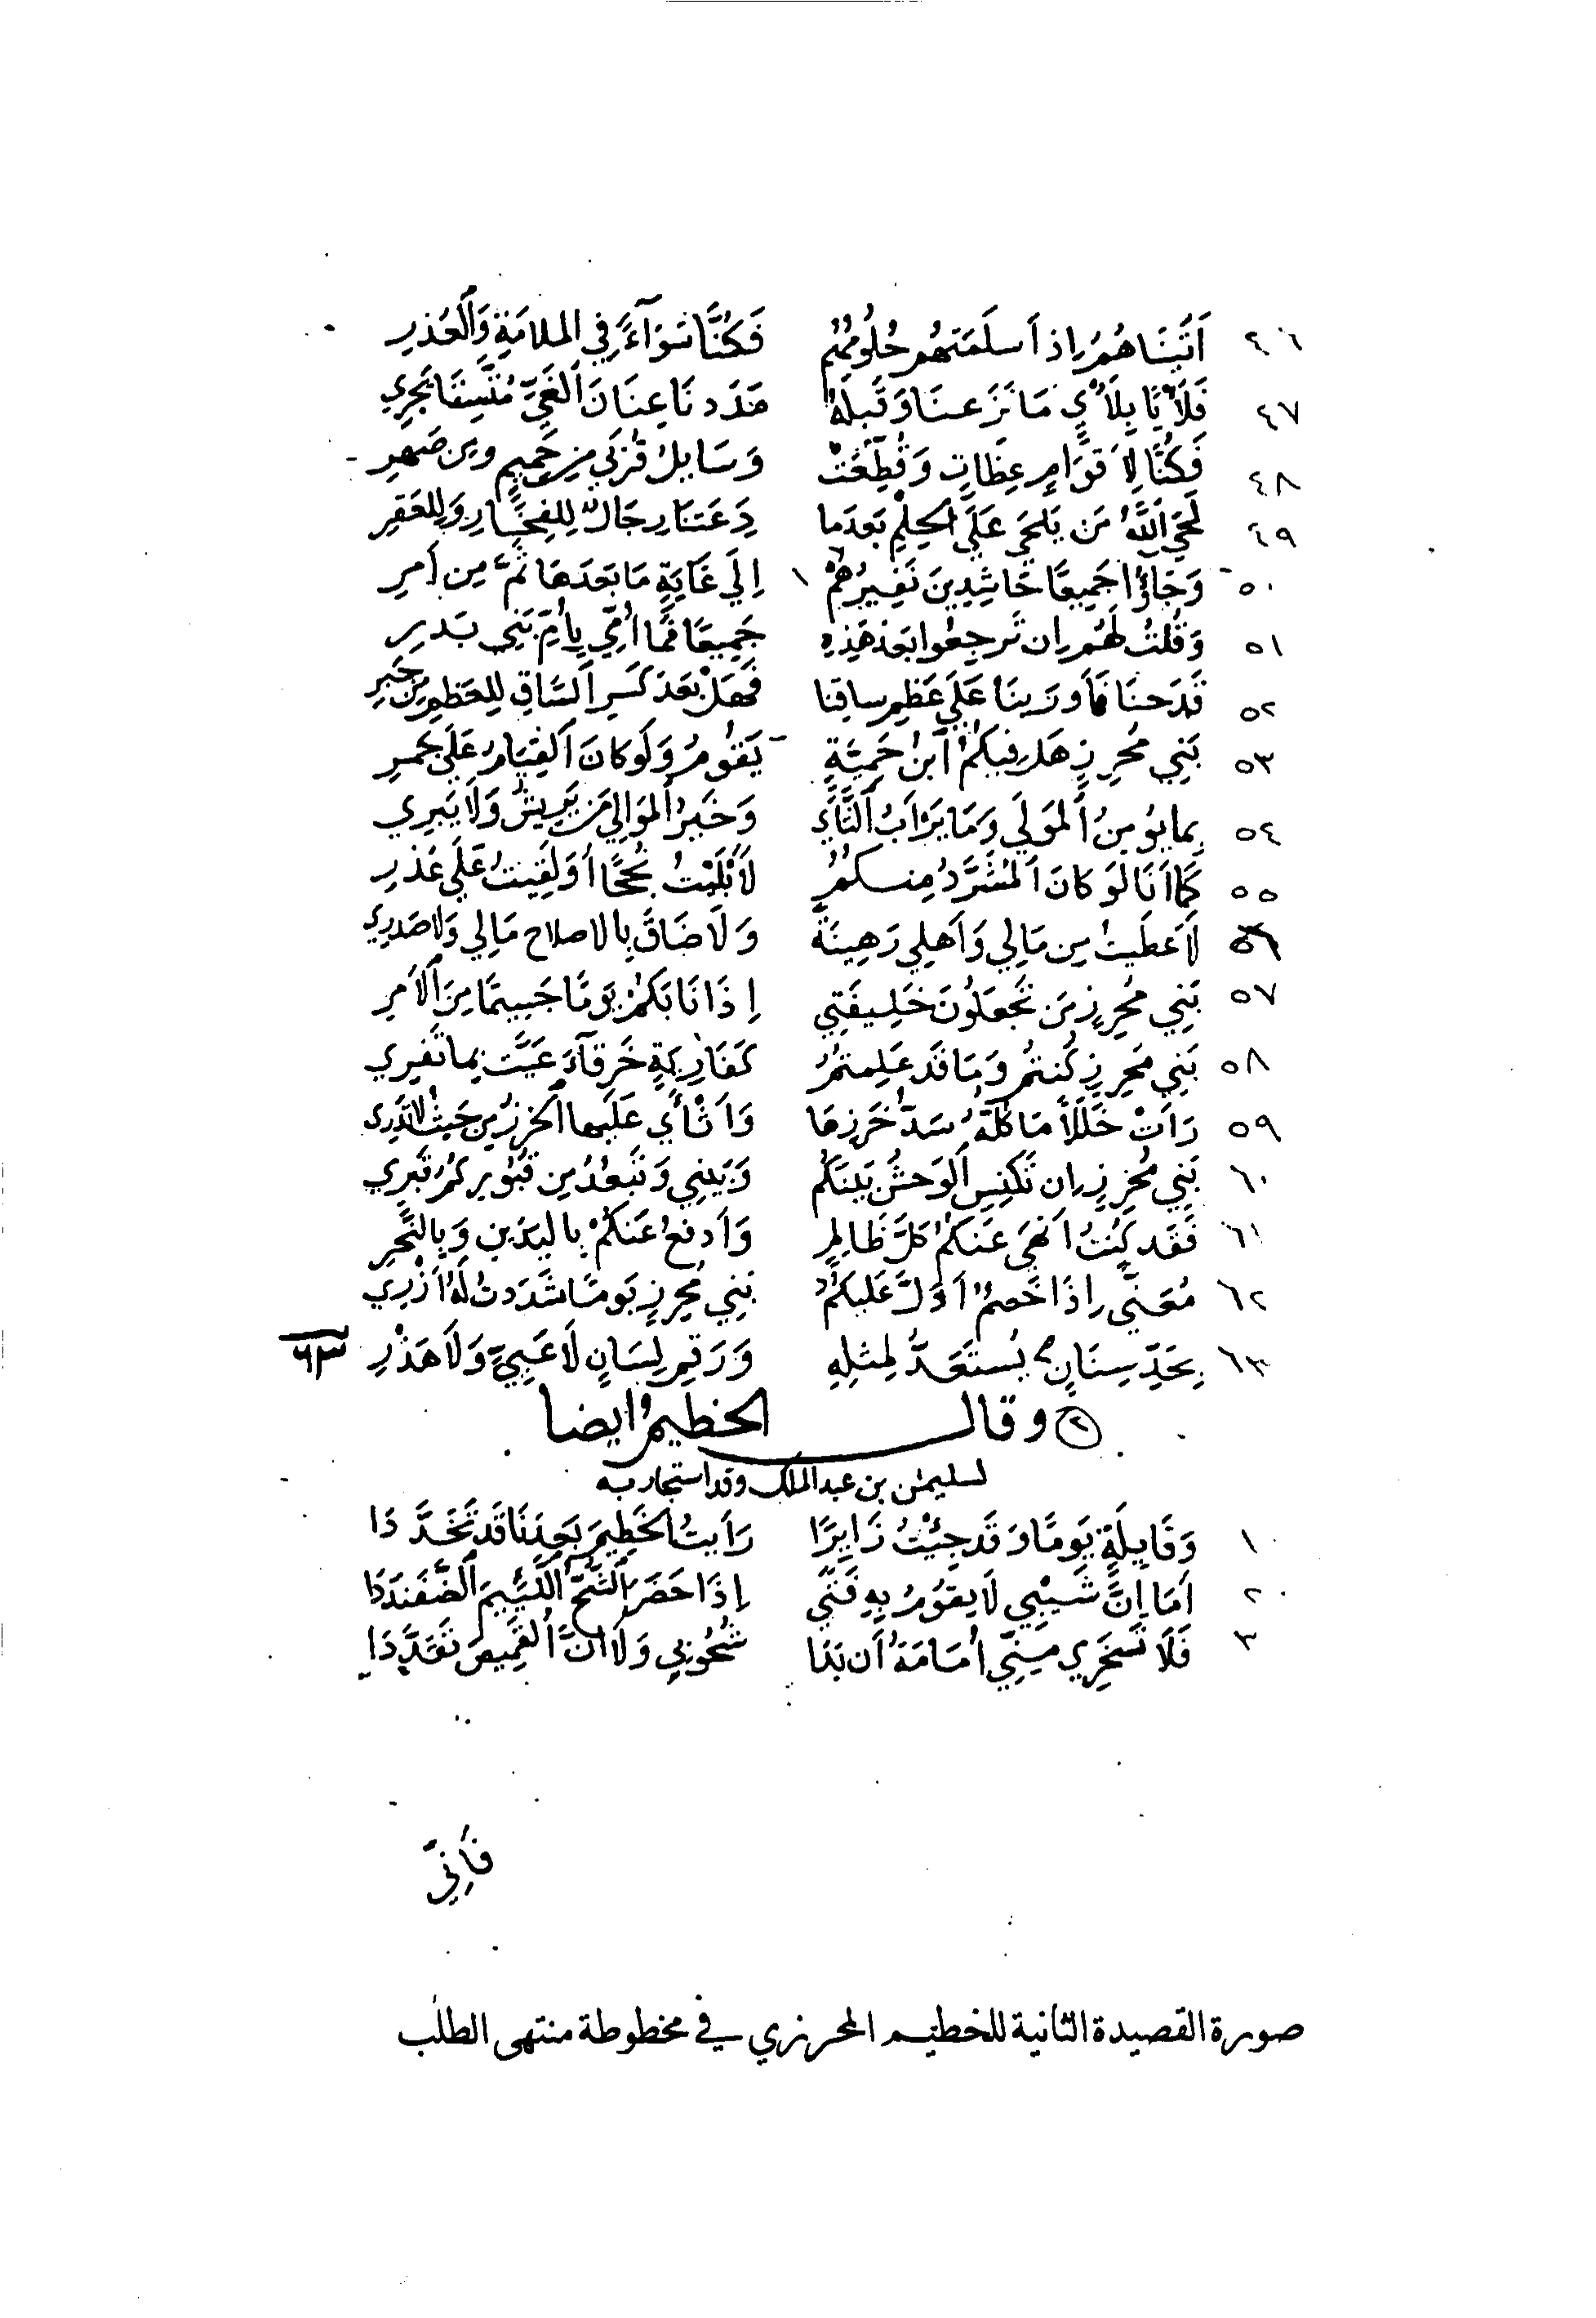 ٤٦ أَتَيْنَاهُمُ إِذ أَسلَمَتهُم حُلُومُهُم فَكُنَّا سَوَآءً فِي المَلامَةِ وَالعُذرِ
٤٧ فَلَأْيًا بِلَأْيٍ مَا نَزَعنَا وَقَبلَهُ مَدَدنَا عِنَانَ الغَيِّ مُتَّسِقًا يَجرِي
٤٨ فَكُنَّا لِأَقوَامٍ عِظَاتٍ وَقُطِّعَتْ وَسَايِلُ قُربَى مِن حَمِيمٍ وَمِن صِهرِ
٤٩ لَحَى اللَّهُ مَن يَلحَى عَلَى الحِلمِ بَعدَمَا دَعَتنَا رِجَالٌ لِلفِخَارِ وَلِلعَقرِ
٥٠ وَجَاؤُا جَمِيعًا حَاشِدِينَ نَفِيرُهُمْ إِلَى غَايَةٍ مَا بَعدَهَا ثَمَّ مِن أَمرِ
٥١ وَقُلتُ لَهُم إِن تَرجِعُوا بَعدَ هَذِهِ جَمِيعًا فَمَا أُمِّي بِأُمِّ بَنِي بَدرِ
٥٢ قَدَحنَا فَأَورَينَا عَلَى عَظمِ سَاقِنَا فَهَلْ بَعدَ كَسرِ السَّاقِ لِلعَظمِ مِن جَبرِ
٥٣ بَنِي مُحرِزٍ هَل فِيكُمُ ابنُ حَمِيَّةٍ يَقُومُ وَلَو كَانَ القِيَامُ عَلَى جَمرِ
٥٤ بِمَا يُومِنُ المَولَى وَمَا يَرْأَبُ الثَّأَى وَخَيرُ المَوَالِي مَن يَرِيشُ وَلَا يَبرِي
٥٥ كَمَا أَنَا لَو كَانَ المُشَرَّدُ مِنكُمُ لَأَبْلَيْتُ نُجحًا أَو لَقِيتُ عَلَى عُذرِ
٥٦ لَأَعطَيتُ مِن مَالِي وَأَهلِي رَهِينَةً وَلَا ضَاقَ بِالاصلاحِ مَالِي وَلَا صَدرِي
٥٧ بَنِي مُحرِزٍ مَن تَجعَلُونَ خَلِيفَتِي إِذَا نَابَكُمْ يَومًا جَسِيمًا مِنَ الأَمرِ
٥٨ بَنِي مُحرِزٍ كُنتُم وَمَا قَد عَلِمتُمُ كَفَارِيَةٍ خَرقَآءَ عَيَّت بِمَا تَفرِي
٥٩ رَأَتْ خَلَلًا مَا كُلَّهُ سَدَّ خَرزُهَا وَأَثْأَى عَلَيهَا الخَرزُ مِن حَيثُ لَا تَدرِي
٦٠ بَنِي مُحرِزٍ إِن تَكنِسِ الوَحشُ بَينَكُم وَبَينِي وَتَبعُد مِن قُبُورِكُمُ قَبرِي
٦١ فَقَد كُنتُ أَنهَى عَنكُمُ كُلَّ ظَالِمٍ وَأَدفَعُ عَنكُمْ بِاليَدَينِ وَبِالنَّحرِ
٦٢ مُعَنًّى إِذَا خَصمٌ أَدَلَّ عَلَيكُمُ بَنِي مُحرِزٍ يَومًا شَدَدتُ لَهُ أَزْرِي
٦٣ بِحَدِّ سِنَانٍ يُستَعَدُّ لِمِثلِهِ وَرَقمِ لِسَانٍ لَا عَيِيٍّ وَلَا هَذْرِ ٦٣
٢ وقال الخطيم ايضا
لسليمن بن عبدالملك وقد استجار به
١ وَقَايِلَةٍ يَومًا وَقَد جِئْتُ زَايِرًا رَأَيتُ الخَطِيمَ بَعدَنَا قَد تَخَدَّدَا
٢ أَمَا إِنَّ شَيْبِي لَا يَقُومُ بِهِ فَتًى إِذَا حَضَرَ الشُّحُّ اللَّئِيمَ الضَّفَندَدَا
٣ فَلَا تَسخَرِي مِنِّي أُمَامَةُ أَن بَدَا شُحُوبِي وَلَا أَنَّ القَمِيصَ تَقَدَّدَا
فَإِنِّي
صورة القصيدة الثانية للخطيم المحرزي في مخطوطة منتهى الطلب